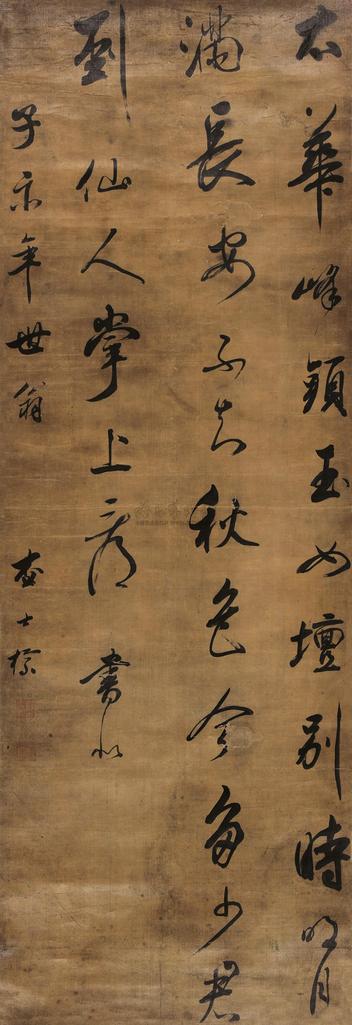 太華峰頭玉女壇別時明月
滿長安不知秋色今多少君
到仙人掌上看 書似
子年世翁 查士標